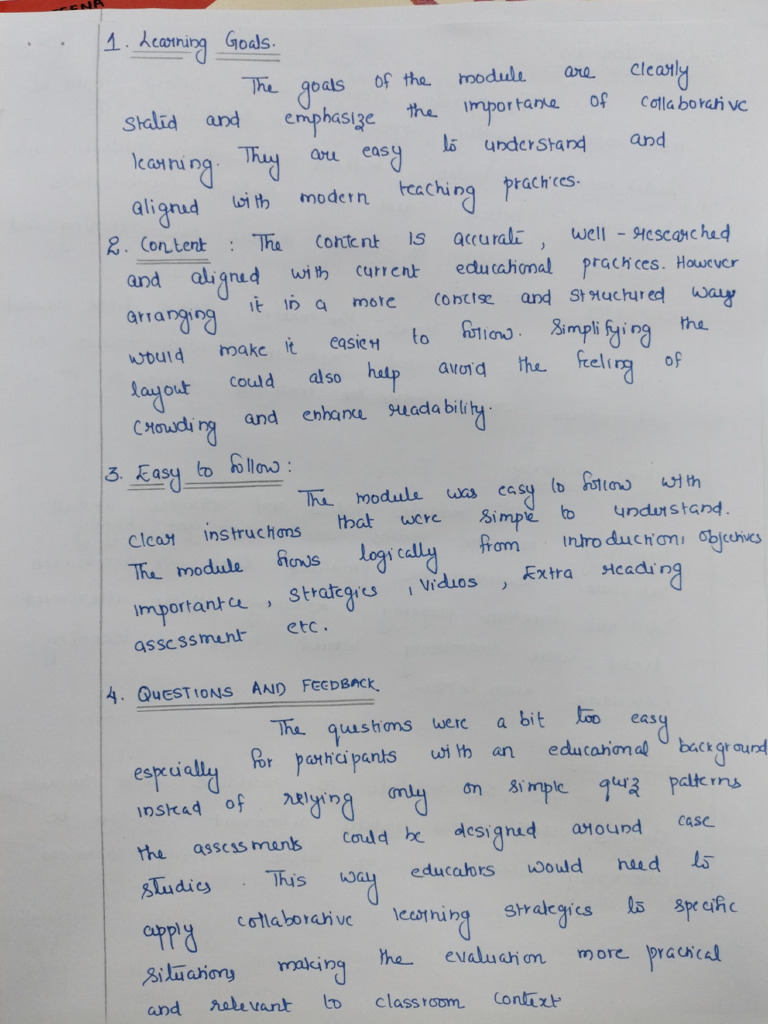 EENA
1. Learning Goals.
The goals of the module are clearly
stated and emphasize the importance of collaborative
learning. They are easy to understand and
aligned with modern teaching practices.
2. Content : The content is accurate, well - researched
and aligned with current educational practices. However
arranging it in a more concise and structured way
would make it easier to follow. Simplifying the
layout could also help avoid the feeling of
crowding and enhance readability.
3. Easy to follow :
The module was easy to follow with
clear instructions that were simple to understand.
The module flows logically from introduction, objectives
importantce, strategies, videos, Extra reading
assessment etc.
4. QUESTIONS AND FEEDBACK
The questions were a bit too easy
especially for participants with an educational background
instead of relying only on simple quiz patterns
the assessments could be designed around case
studies. This way educators would need to
apply collaborative learning strategies to specific
situations making the evaluation more practical
and relevant to classroom context.